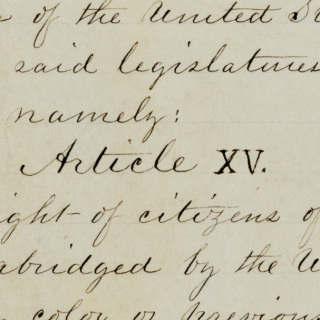 of the United S
said legislatures
namely:
Article XV.
ight of citizens of
abridged by the U
color or previous